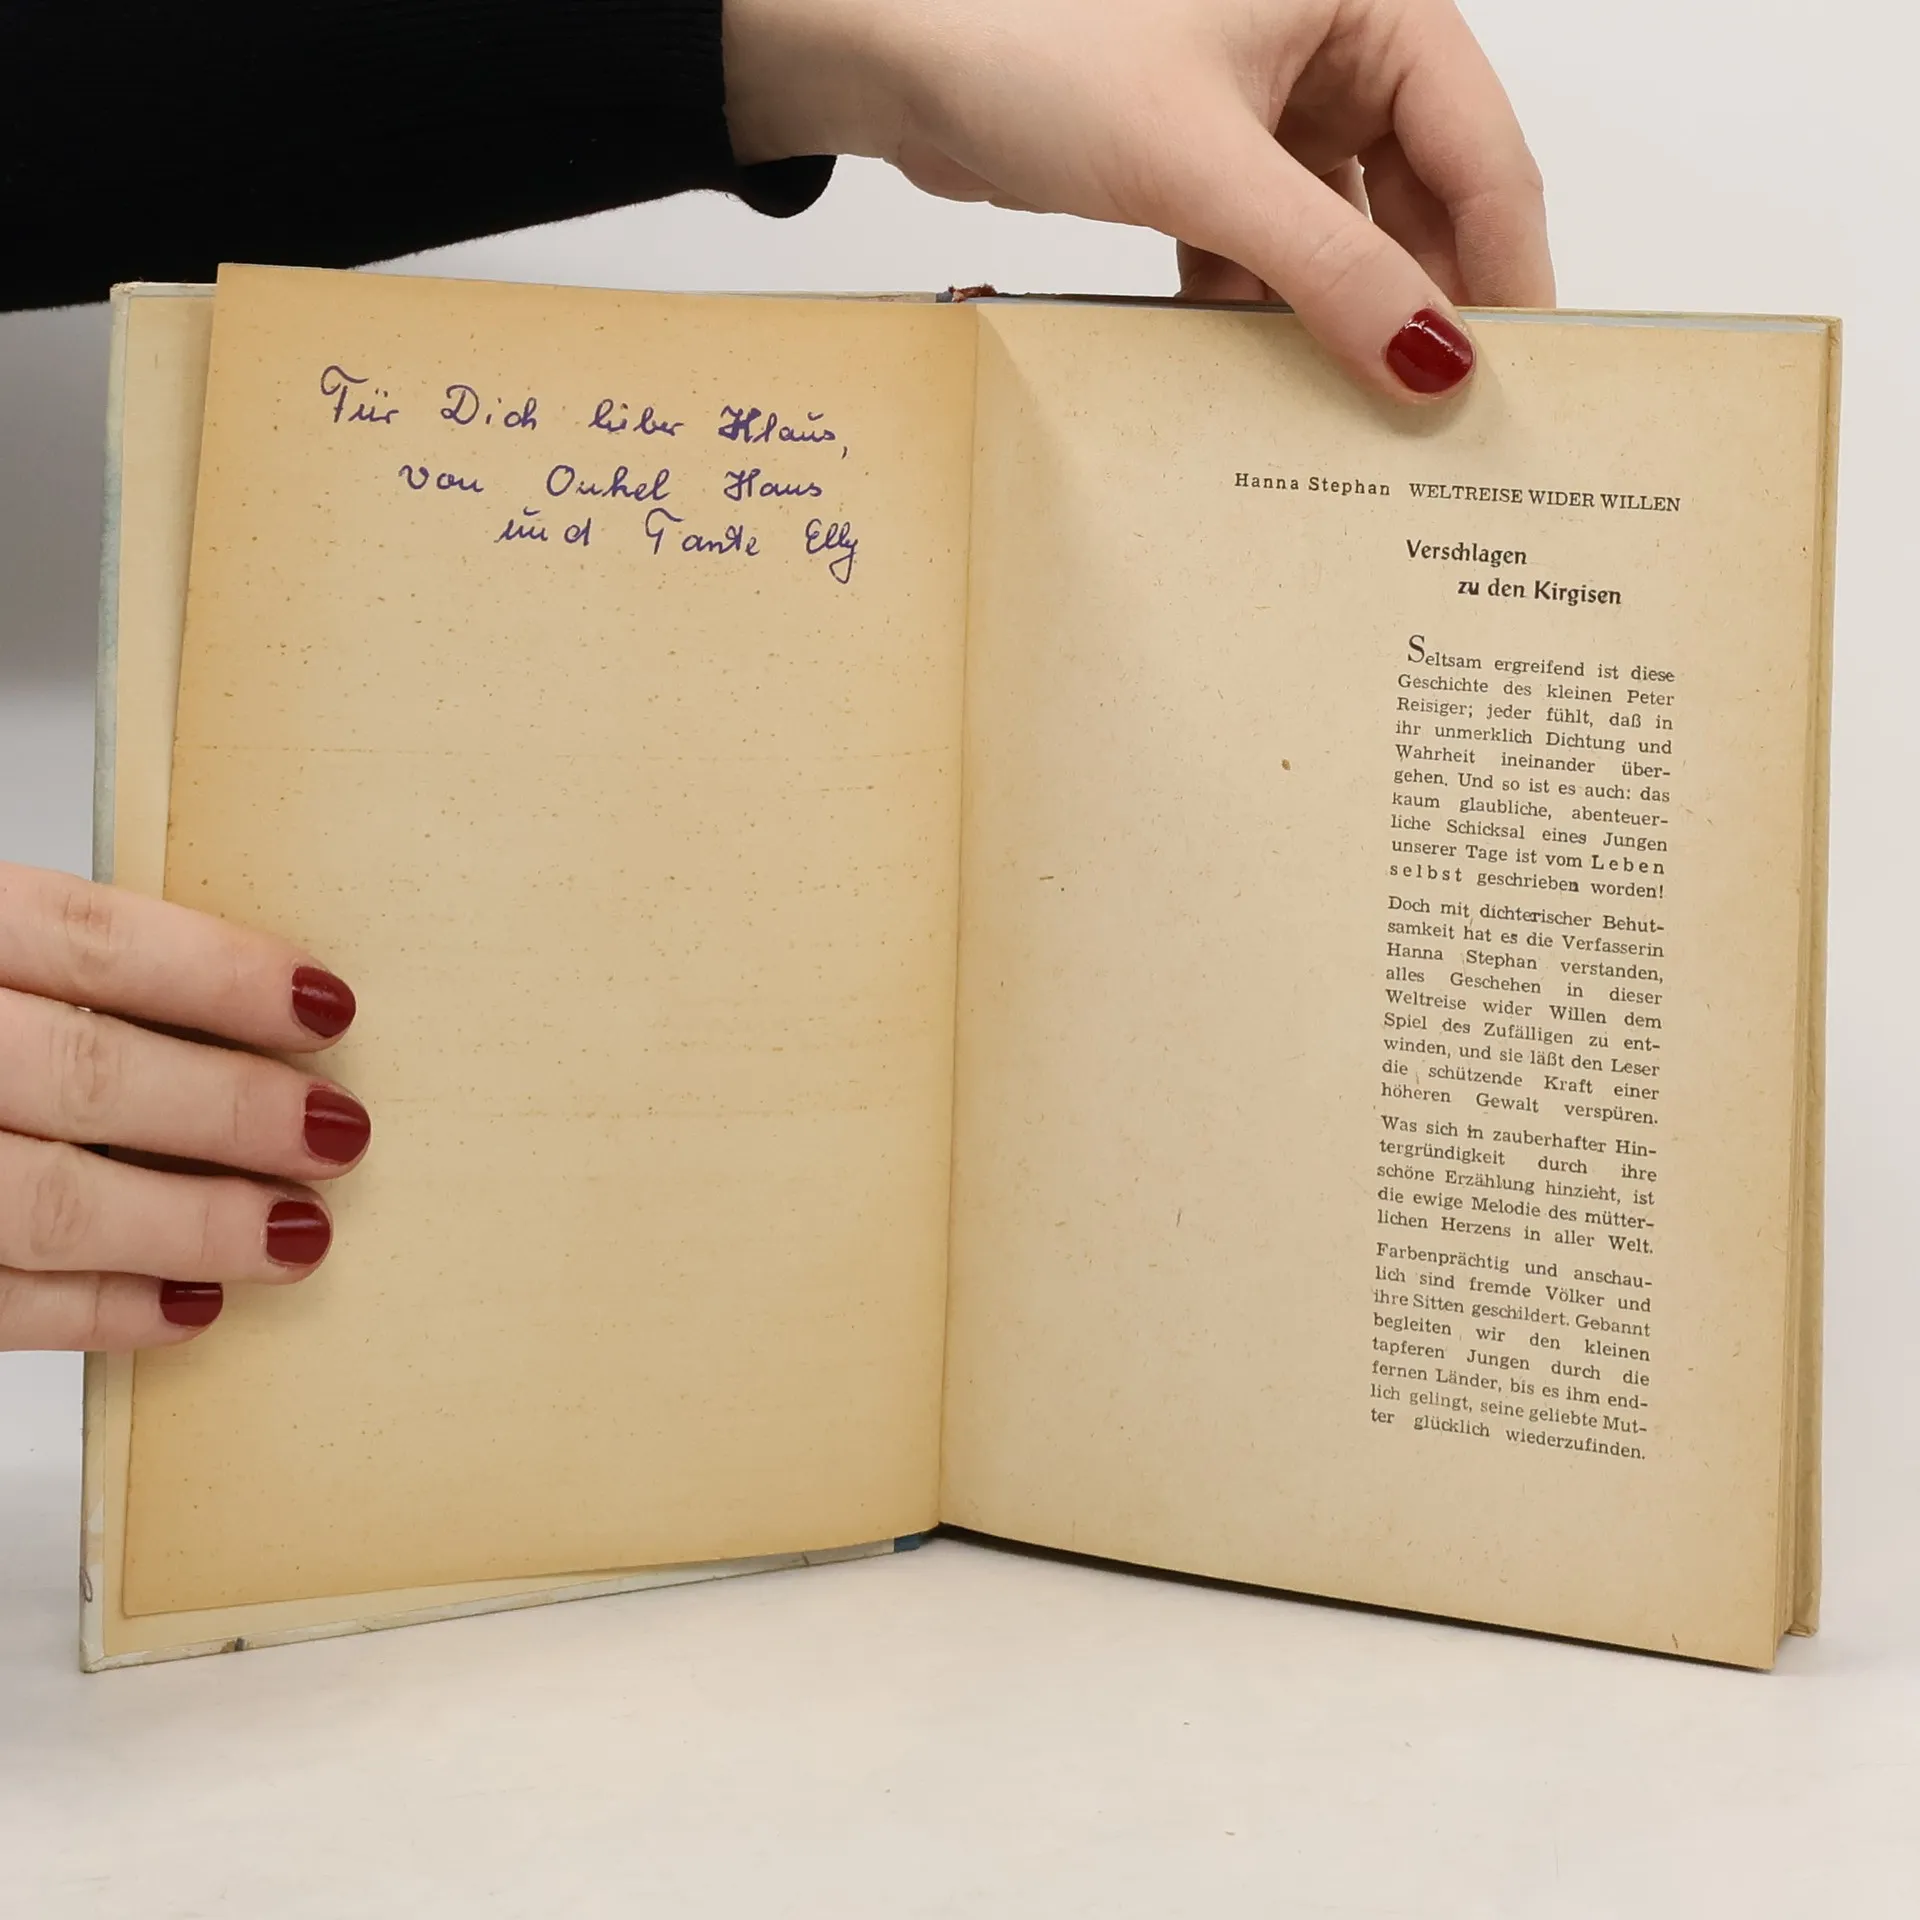 Für Dich lieber Klaus,
von Onkel Hans
und Tante Elly
Hanna Stephan WELTREISE WIDER WILLEN
Verschlagen
zu den Kirgisen
Seltsam ergreifend ist diese
Geschichte des kleinen Peter
Reisiger; jeder fühlt, daß in
ihr unmerklich Dichtung und
Wahrheit ineinander über-
gehen. Und so ist es auch: das
kaum glaubliche, abenteuer-
liche Schicksal eines Jungen
unserer Tage ist vom Leben
selbst geschrieben worden!
Doch mit dichterischer Behut-
samkeit hat es die Verfasserin
Hanna Stephan verstanden,
alles Geschehen in dieser
Weltreise wider Willen dem
Spiel des Zufälligen zu ent-
winden, und sie läßt den Leser
die schützende Kraft einer
höheren Gewalt verspüren.
Was sich in zauberhafter Hin-
tergründigkeit durch ihre
schöne Erzählung hinzieht, ist
die ewige Melodie des mütter-
lichen Herzens in aller Welt.
Farbenprächtig und anschau-
lich sind fremde Völker und
ihre Sitten geschildert. Gebannt
begleiten wir den kleinen
tapferen Jungen durch die
fernen Länder, bis es ihm end-
lich gelingt, seine geliebte Mut-
ter glücklich wiederzufinden.